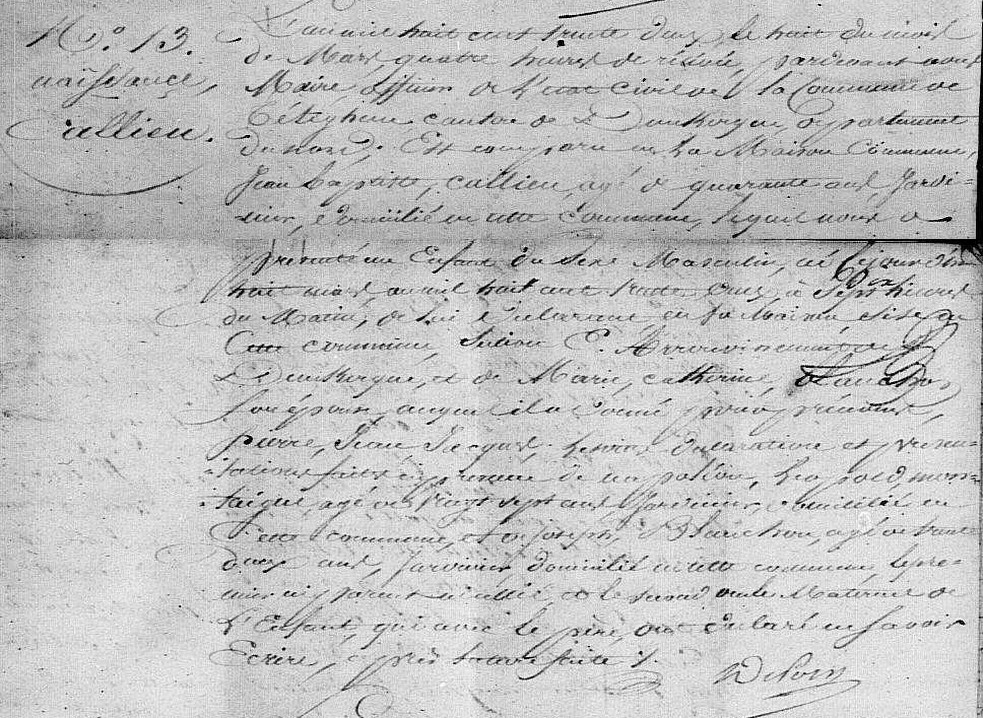 N.o 13.
naissance,
Callieu.
L'an mil huit cent trente deux, le huit du mois
de Mars, quatre heures de relevée, pardevant nous
Maire, officier de l'etat civil de la Commune de
Téteghem canton de Dunkerque, Département
du nord, Est comparu en la Maison Commune,
Jean Baptiste, Callieu, agé de quarante ans Jardi-
nier, domicilié en cette Commune, lequel nous a
présenté un Enfant du Sexe Masculin, né
huit mars, an mil huit cent trente deux, à Sept heures
du Matin, de lui déclarant en sa Maison, sise en
Cette commune, Section C. Arrondissement de
Dunkerque, et de Marie, Catherine, Blanckou,
Son épouse, auquel il a donné prénoms,
pierre, Jean Jacques. Lesdites déclaration et présen-
tations faites en présence de Leopold mon-
taigue, agé de Vingt sept ans Jardinier, domicilié en
Cette commune, et de Joseph, Blanckou, agé de trente
deux ans, Jardinier domicilié en cette commune, le pre-
mier ni parent ni allié, et le second oncle Maternel de
L'Enfant, qui avec le père, ont déclaré ne savoir
Ecrire, après lecture faite ./.